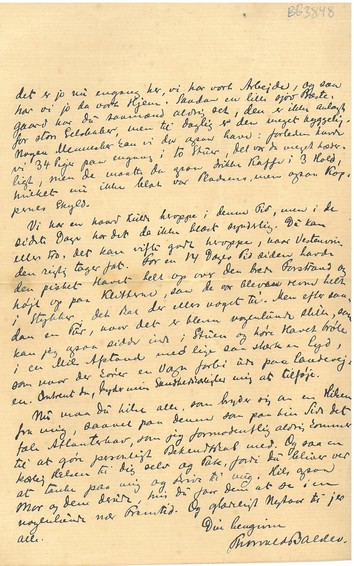 BG3848
det er jo nu engang her, vi har vort Arbejde, og saa
har vi jo da vort Hjem. Saadan en lille sjov Præste-
gaard har du saamænd aldrig set, den er ikke anlagt
for store Selskaber, men til daglig er den meget hyggelig.
Nogen Mennesker kan vi der ogsaa have: forleden havde
vi 34 Piger paa engang i to Stuer, det var da meget hæder-
ligt, men de maatte da ogsaa drikke Kaffe i 3 Hold,
hvilket nu ikke blot var Pladsens, men ogsaa Kop-
pernes Skyld.
Vi har en haard Kulde heroppe i denne Tid, men i de
sidste Dage har det da ikke blæst synderligt. Du kan
ellers tro, det kan vifte godt heroppe, naar Vestenvin-
den rigtig tager fat. For en 14 Dages Tid siden havde
den pisket Havet helt op over den brede Forstrand og
højt op paa Klitterne, saa de var blevne revne helt
i Stykker, det Bæ der ellers voget te. Men efter saa-
dan en Tur, naar det er bleven nogenlunde stille, saa
kan jeg ogsaa sidde inde i Stuen og høre Havet brøle
i en Mils Afstand med lige saa stærk en Lyd,
som naar der kører en Vogn forbi ude paa Landevej-
en. Omtrent da, byder min Sandhedskærlighed mig at tilføje.
Nu maa du hilse alle, som bryder sig om en Hilsen
fra mig, saavel paa denne som paa hin Side det
fæle Atlanterhav, som jeg formodentlig aldrig kommer
til at gøre personligt Bekendtskab med. Og saa en
kærlig Hilsen til dig selv og Tak, fordi du bliver ved
at tænke paa mig og skrive til mig. Hils ogsaa
Mor og dem derude, hvis du faar dem at se i en
nogenlunde nær Fremtid. Og glædeligt Nytaar til jer
alle.
Din hengivne
Thorvald Balslev.